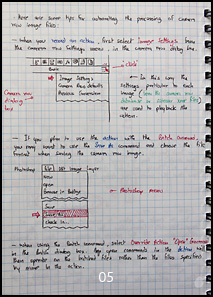 - Here are some tips for automating the processing of camera
raw image files.
- When you record an action, first select Image Settings from
the camera raw Settings menu in the camera raw dialog box.
"click"
Image Settings
Camera Raw Defaults
Previous Conversion
Camera raw
dialog
box
- In this way, the
settings particular to each
image (from the camera raw
database or sidecar xmp files)
are used to playback the
action.
- If you plan to use the action with the Batch command,
you may want to use the Save As command and choose the file
format when saving the camera raw image.
Photoshop
File Edit Image Layer
New
Open
Browse in Bridge
Photoshop menu
Save
Save As
Check in...
- When using the Batch command, select Override Action "Open" Commands
in the Batch dialog box. Any open commands in the action will
then operate on the batched files rather than the files specified
by name in the action.
05